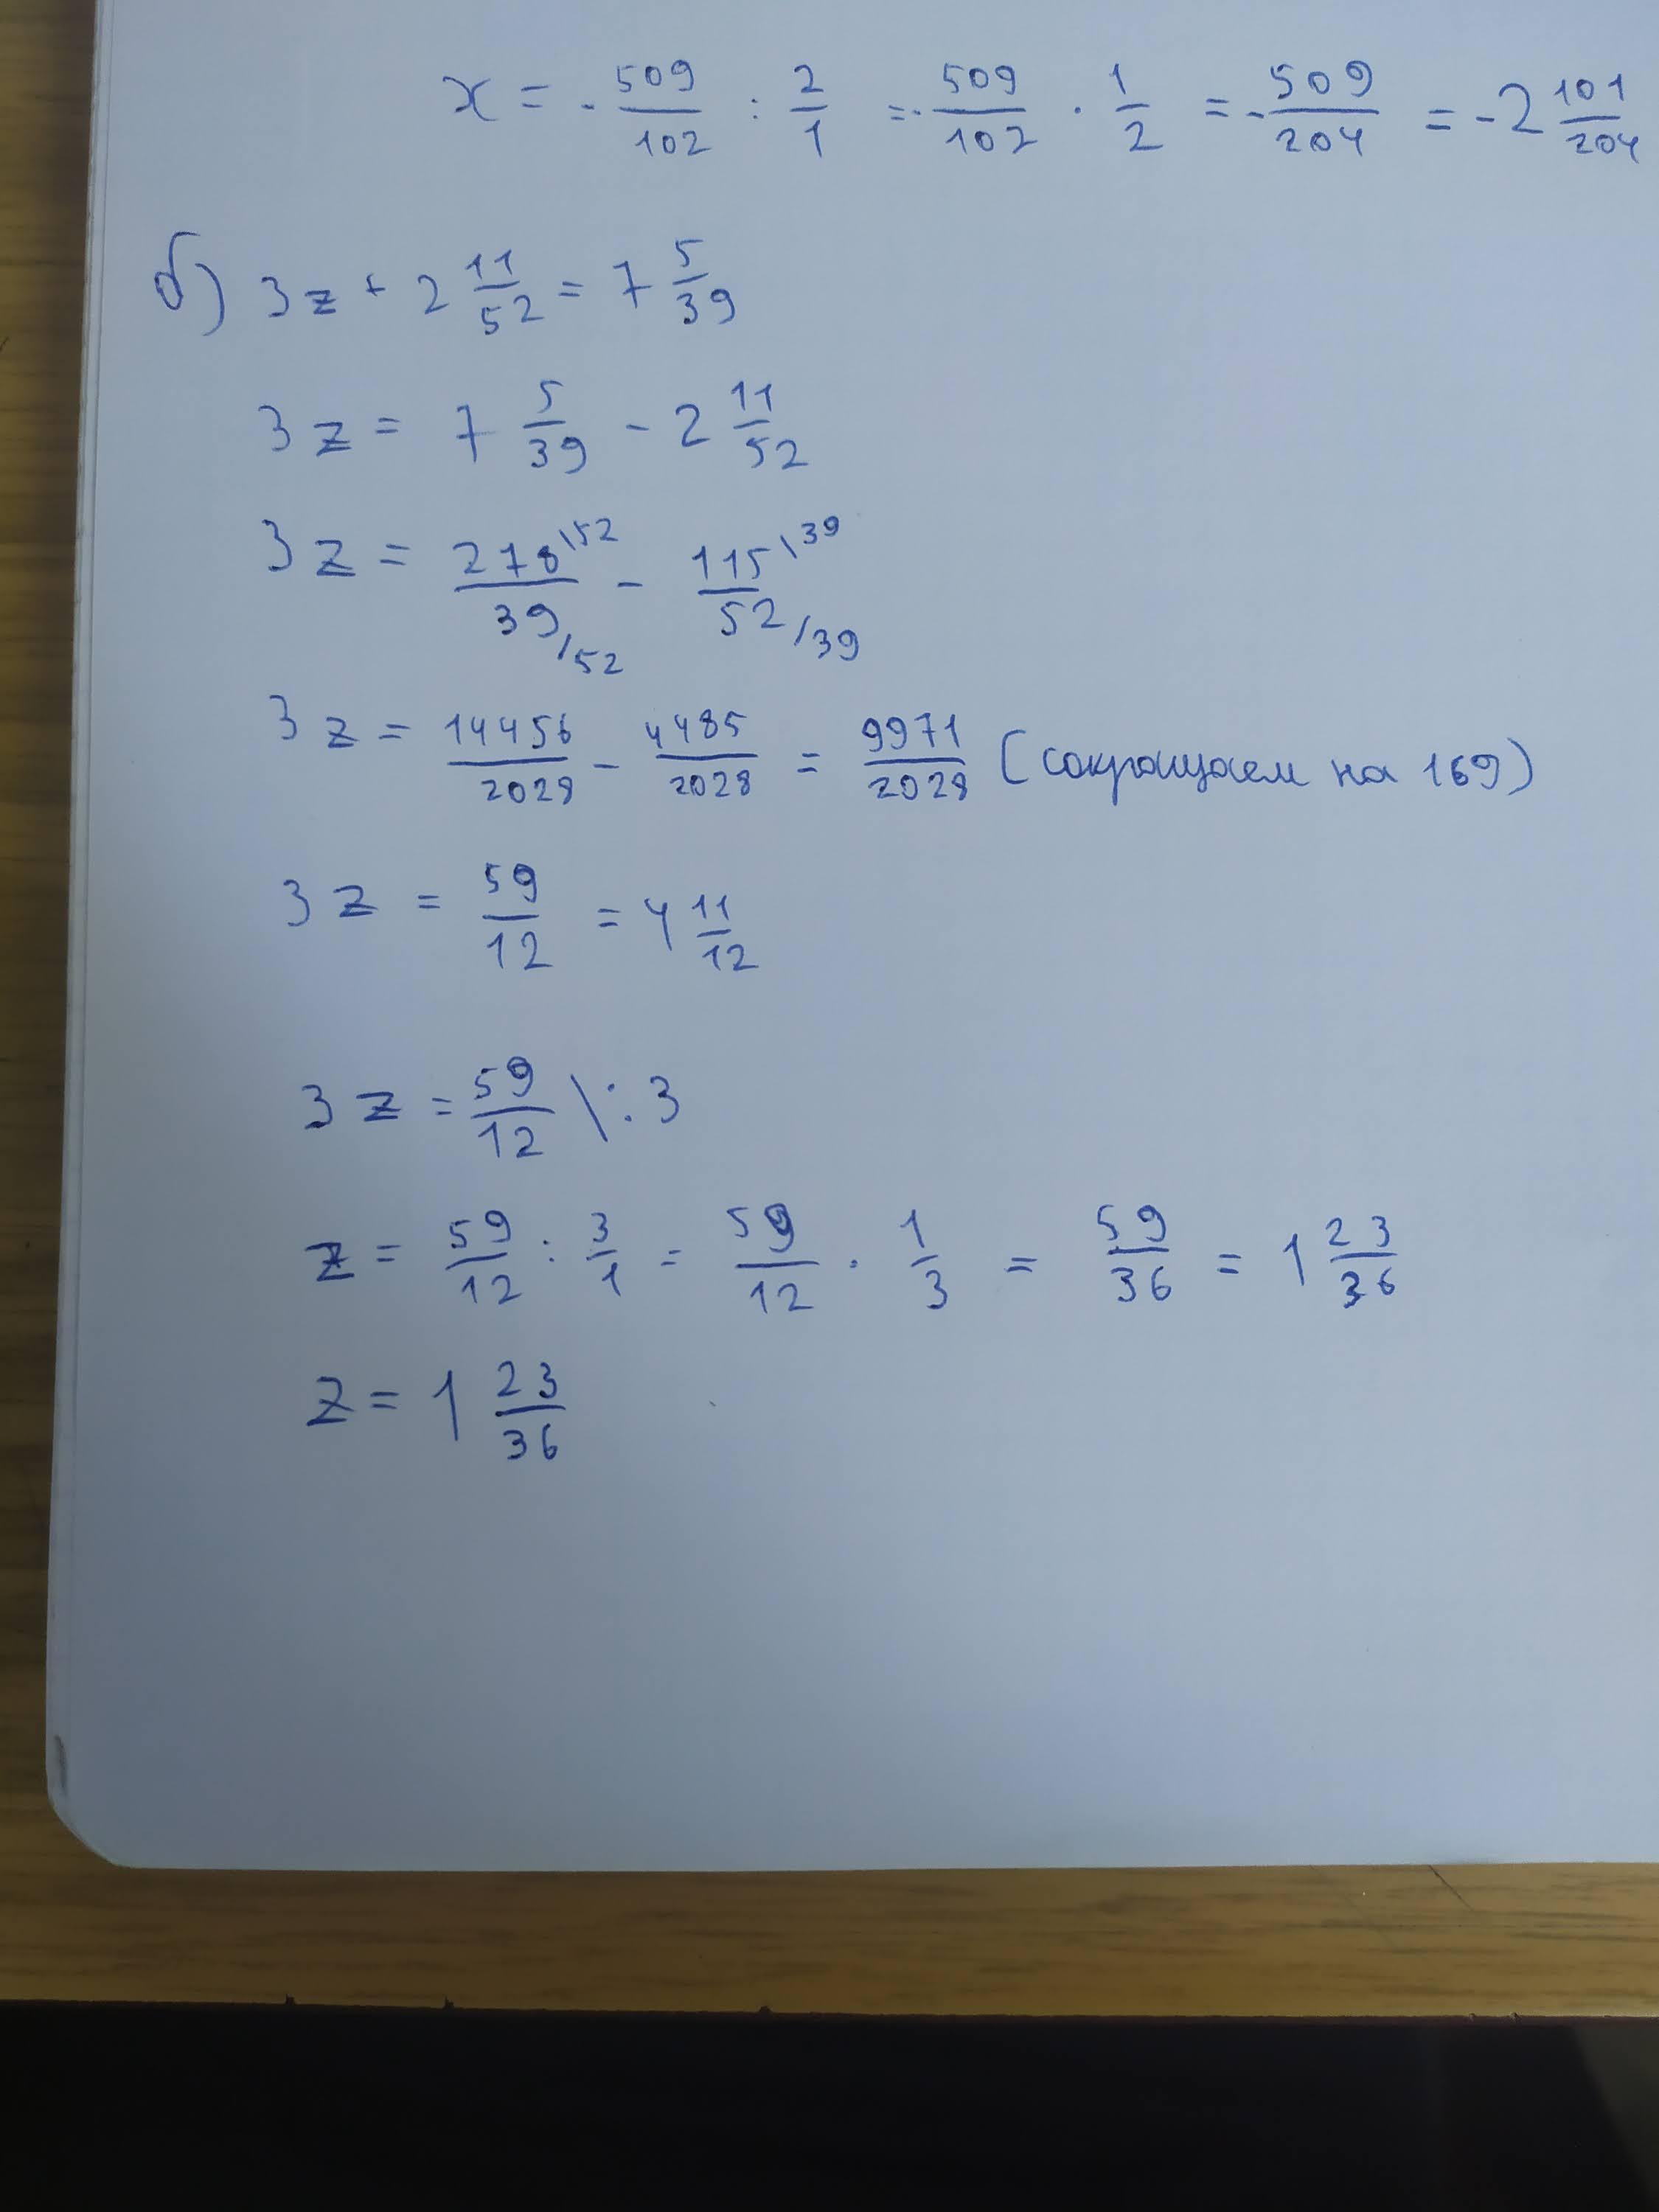 x = - 509/102 : 2/1 = - 509/102 · 1/2 = - 509/204 = -2 101/204
б) 3z + 2 11/52 = 7 5/39
3z = 7 5/39 - 2 11/52
3z = 278\52 / 39/52 - 115\39 / 52/39
3z = 14456/2028 - 4485/2028 = 9971/2028 (сокращаем на 169)
3z = 59/12 = 4 11/12
3z = 59/12 \ : 3
z = 59/12 : 3/1 = 59/12 · 1/3 = 59/36 = 1 23/36
z = 1 23/36